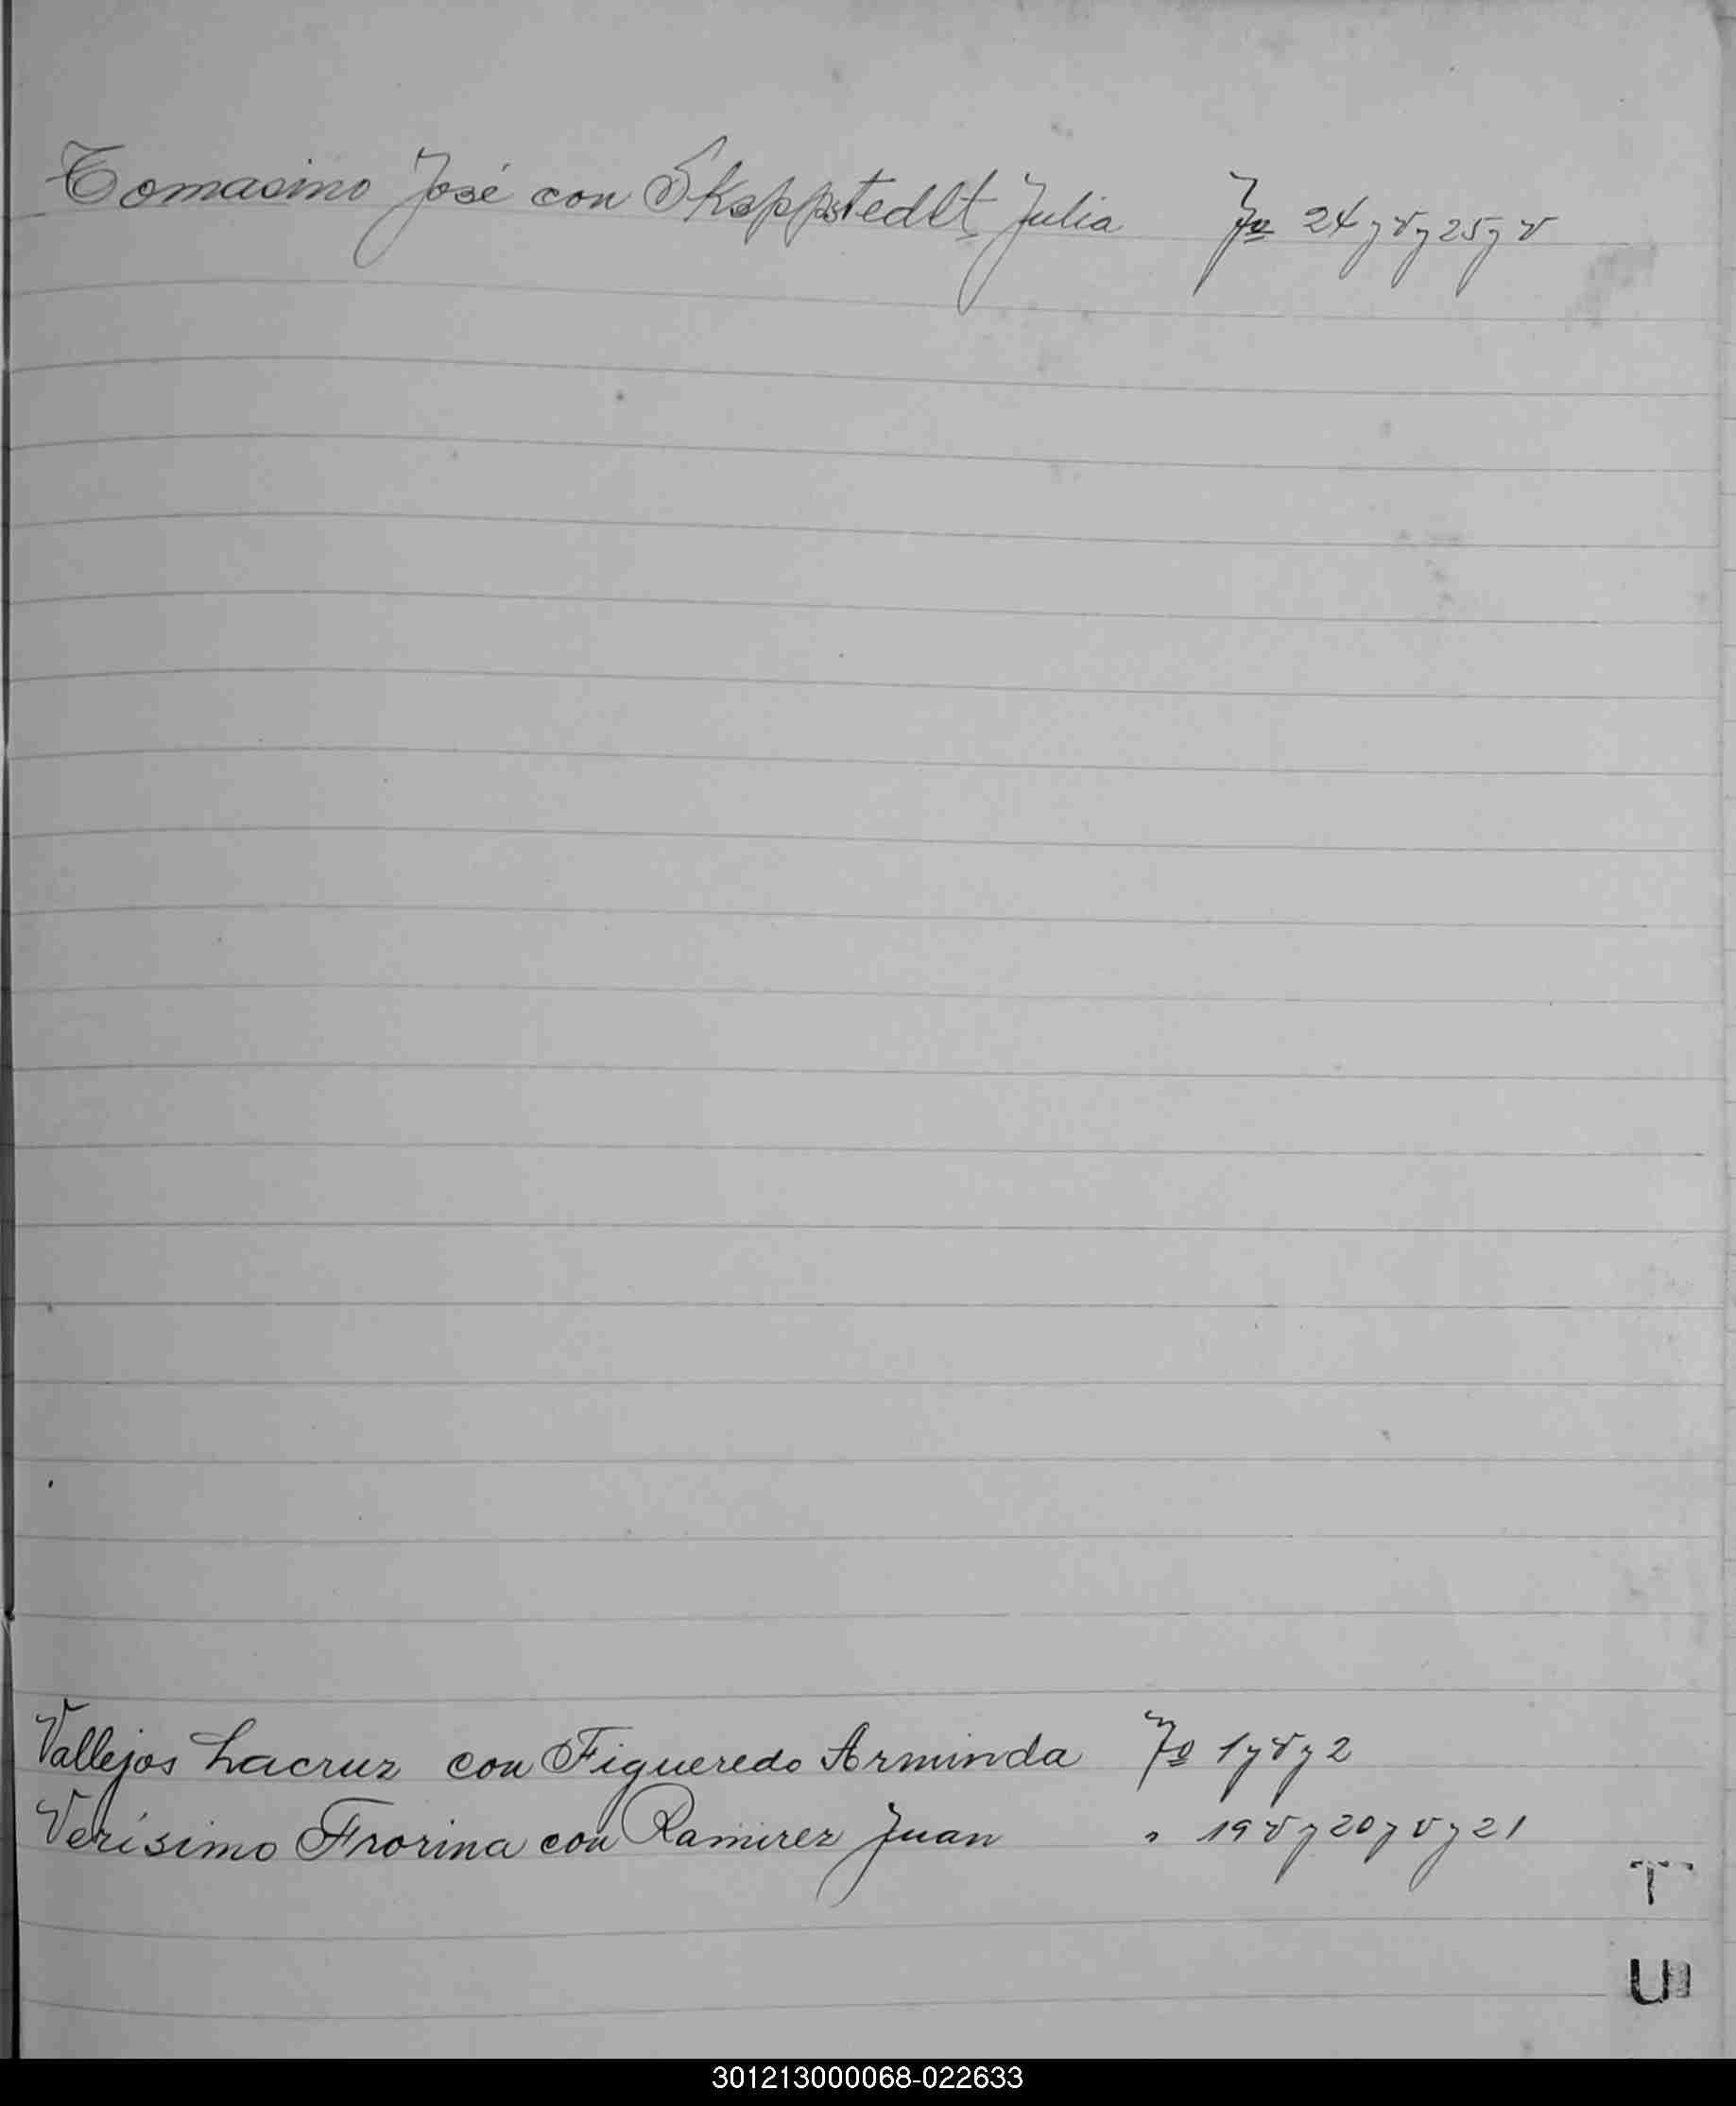 Tomasino José con Skappstedlt Julia Fo 24 y v y 25 y v
Vallejos Lacruz con Figueredo Arminda Fo 1 y v y 2
Verísimo Frorina con Ramirez Juan " 19 v y 20 y v y 21
T
U
301213000068-022633